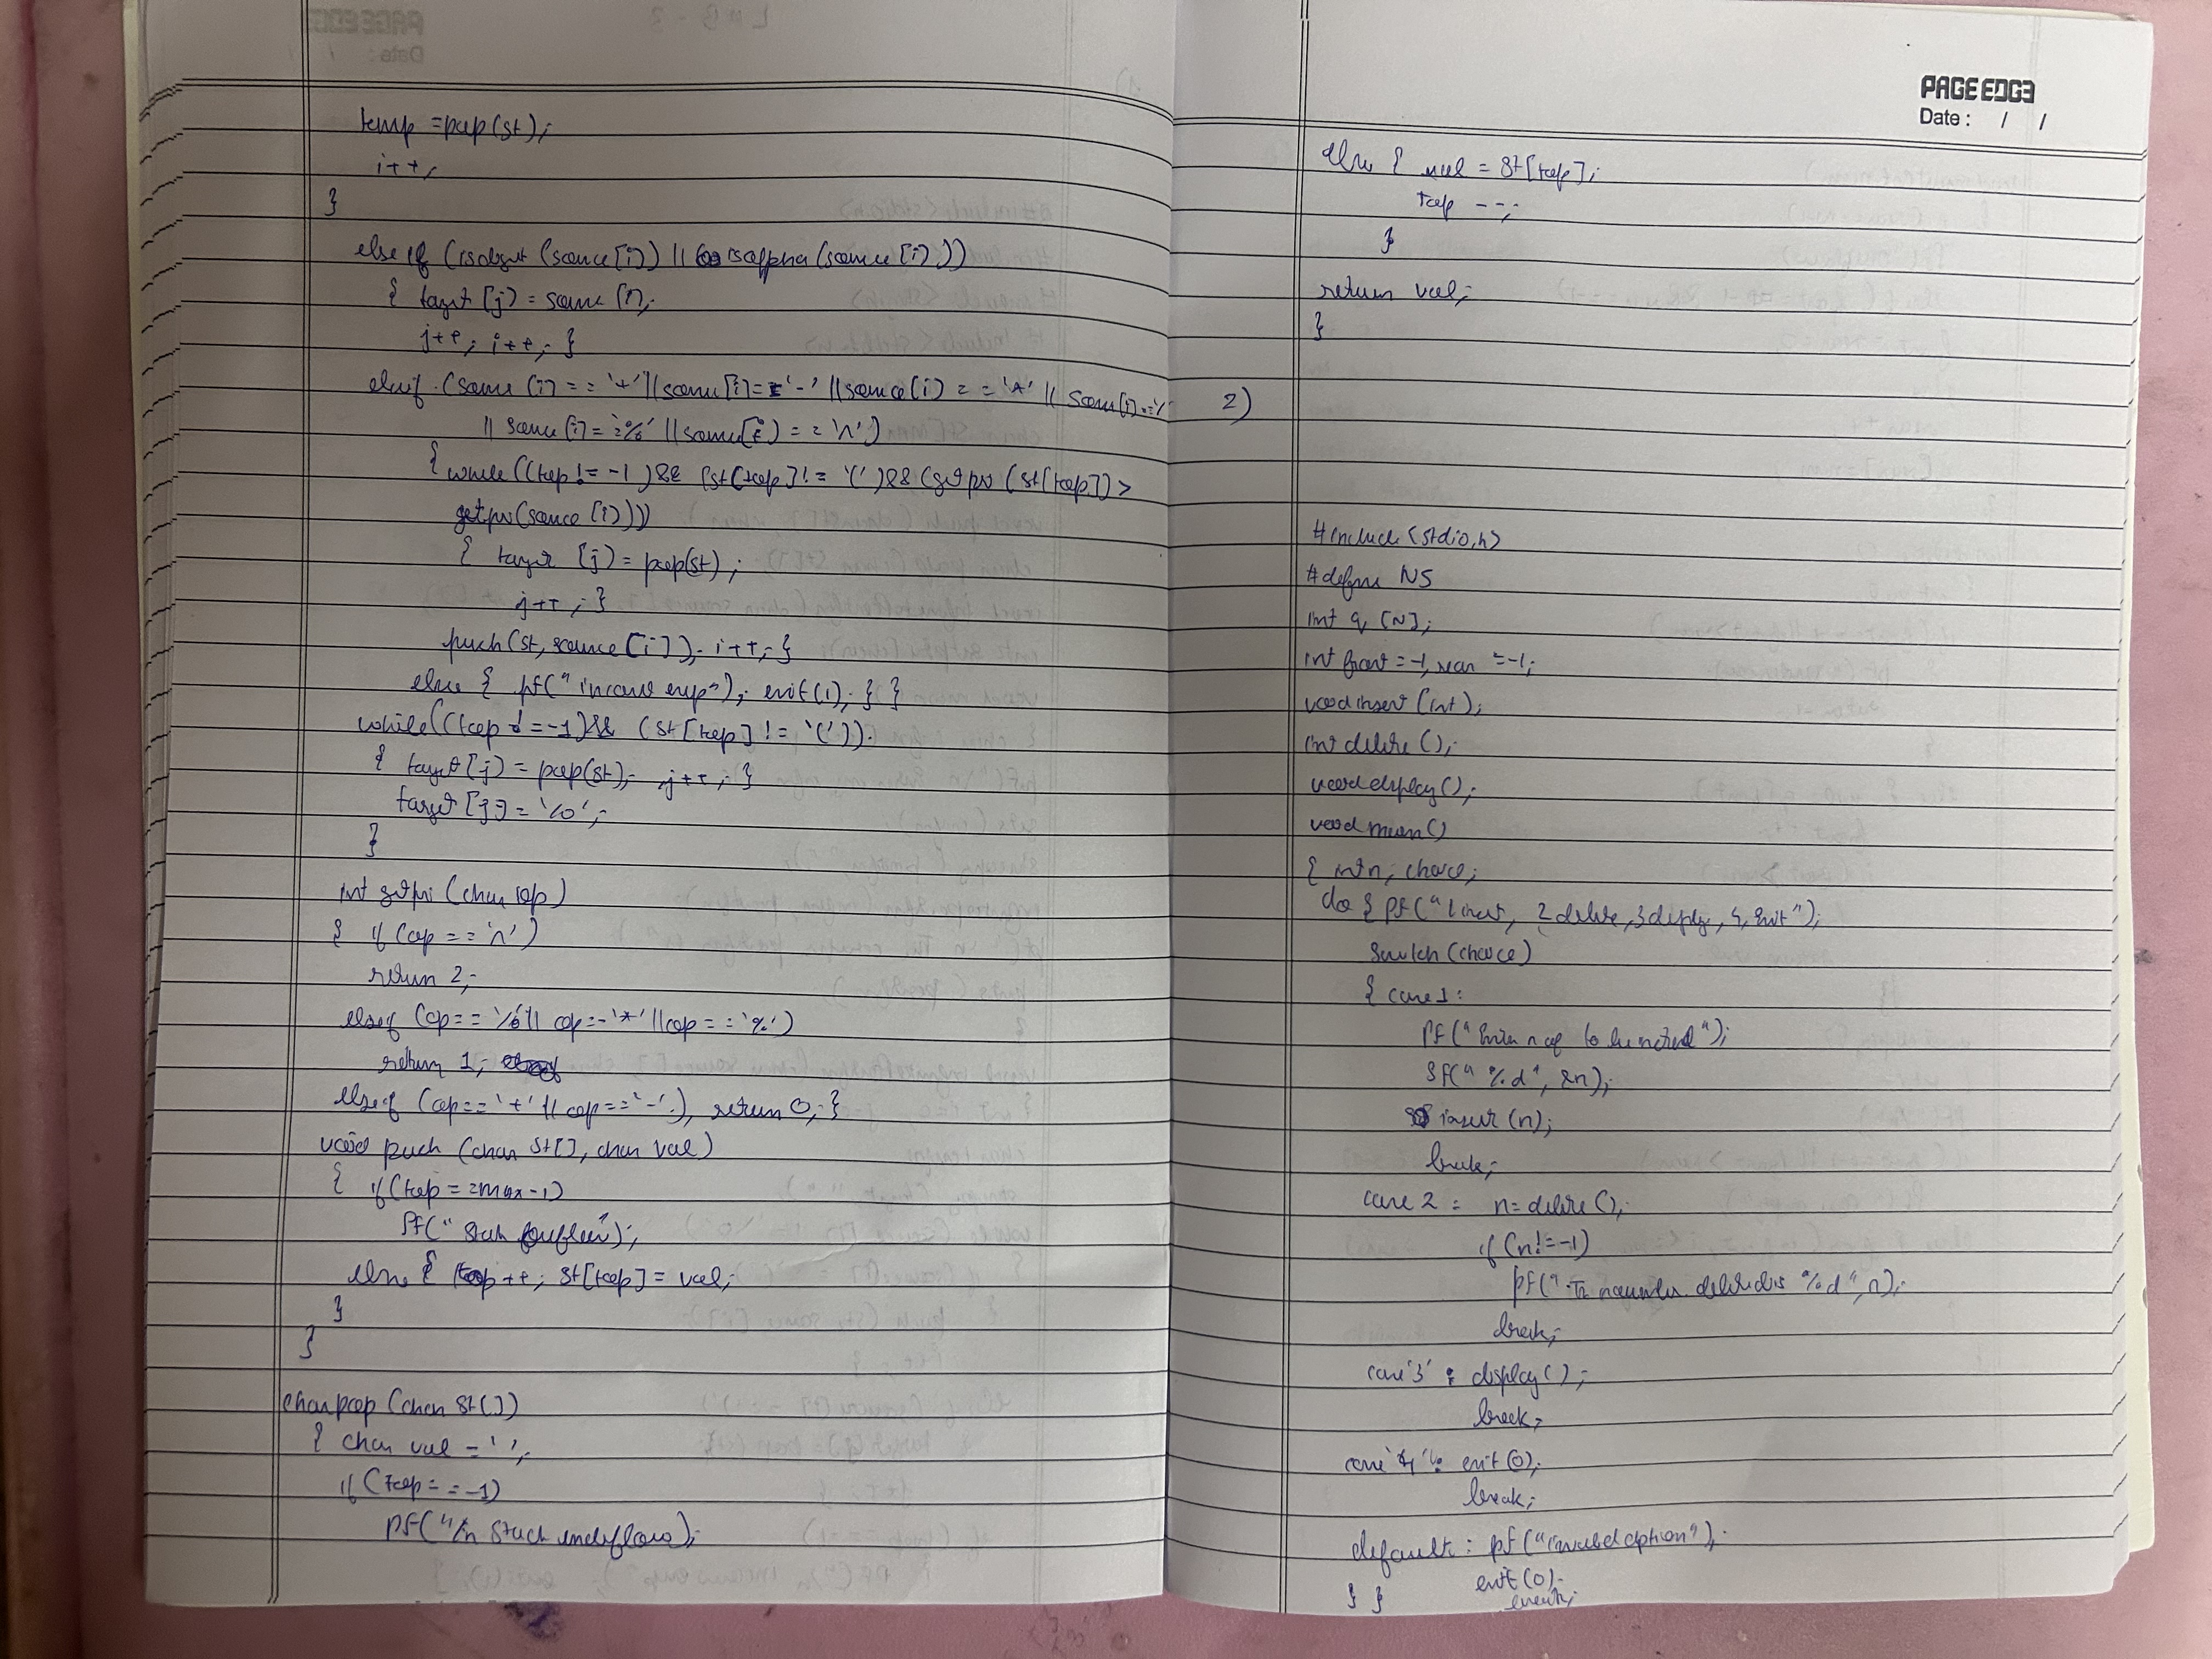 temp = pop(st);
i++;
}
else if (isdigit (source[i]) || isalpha(source[i]))
{ target [j] = source [i];
j++; i++; }
else if (source [i] == '+' || source[i] == '-' || source [i] == '*' || source[i] == '/'
|| source [i] == '%' || source[i] == '^')
{ while ((top != -1) && (st[top] != '(') && (getpri (st[top]) >
getpri(source [i])))
{ target [j] = pop(st);
j++; }
push (st, source [i]); i++; }
else { pf(" incorrect exp"); exit(1); } }
while ((top != -1) && (st[top] != '('))
{ target [j] = pop(st); j++; }
target [j] = '\0';
}
int getpri (char op)
{ if (op == '^')
return 2;
else if (op == '/' || op == '*' || op == '%')
return 1;
else if (op == '+' || op == '-'), return 0; }
void push (char st[], char val)
{ if (top == max-1)
Pf(" Stack overflow");
else { top++; st[top] = val;
}
}
char pop (char st[])
{ char val = ' ';
if (top == -1)
PF("\n Stack underflow);
PAGE EDGE
Date : / /
else { val = st[top];
top --;
}
return val;
}
2)
#include (stdio.h)
#define N5
int q [N];
int front = -1, rear = -1;
void insert (int);
int delete ();
void display ();
void main ()
{ int n, choice;
do { pf(" 1. insert, 2 delete, 3 display, 4, Exit ");
Switch (choice)
{ case 1:
PF(" Enter n of to be inserted ");
Sf(" %d", &n);
insert (n);
break;
case 2 : n = delete ();
if (n != -1)
pf(" The number deleted is %d", n);
break;
case '3' : display ();
break;
case '4' : exit (0);
break;
default : pf(" invalid option");
exit (0);
break;
} }